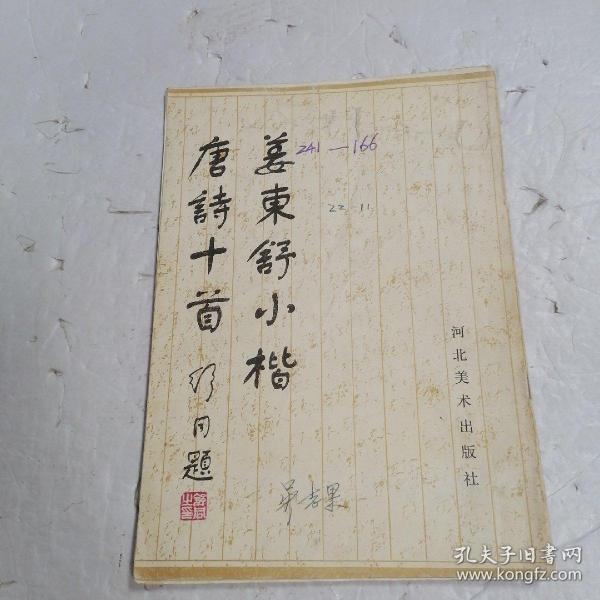 姜東舒小楷
唐詩十首
舒同題
241—166
22-11
河北美术出版社
孔夫子旧书网
www.kongfz.com